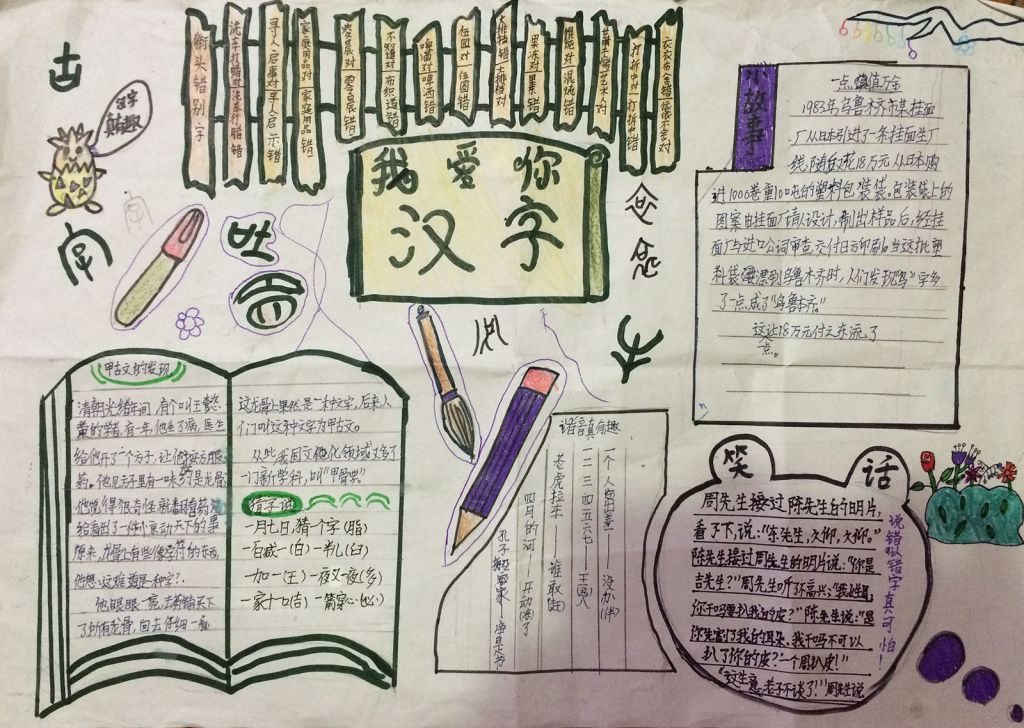 古
汉字
真有趣
字
街头错别字
洗车打蜡对洗车打错错
寻人启事对寻人启示错
家庭用品对家廷用品错
零星对零百衣错
不锈对布织造错
啤酒对啤洒错
位园对位圆错
大排档错大排挡对
果冻对果果错
馄饨对混炖错
打折中对打析中错
我爱你
汉字
吐
小故事
一点值万金
1983年,乌鲁木齐市某挂面
厂从日本引进了一条挂面生厂
线,随后又花18万元从日本购
进1000卷重10吨的塑料包装袋。包装袋上的
图案由挂面厂请人设计,制出样品后,经挂
面厂与进口公词审查交付日方印刷。当这批塑
料袋漂漂到乌鲁木齐时,人们发现“乌”字多
了一点成了“鸟鲁木齐”。
这让18万元付之东流了
一点。
甲古文的发现
清朝光绪年间,有个叫王懿
荣的学者,有一年,他生了病,医生
给他开了一个方子,让他按方服
药。他见方子里有一味药是龙骨
他觉得很奇怪就翻翻药渣
给看出了一件轰动天下的事
原来,龙骨上有些像字符的东西,
他想:这难道是一种字?.
他眼眼一亮,去药铺买下
了所有龙骨,回去仔细一看
这龙骨上果然是一种文字,后来人
们叫这种文字为甲古文。
从此,我国文化领域又多了
一门新学科,叫“甲骨学”
猜字谜
一月七日,猜个字(脂)
一百减一(白)一半儿(臼)
一加一(王)一夜又一夜(多)
一家十一口(吉)一箭穿心(必)
谐音真有趣
一个人出差——没办(伴)
一二三四五六七——王(忘)八
老虎拉车——谁敢(赶)
四月的河——开动(冻)了
孔子搬家——净是书
笑话
周先生接过陈先生的明片,
看了下,说:“东先生,久仰,久仰。”
陈先生接过周先生的明片说:“你是
吉先生?”周先生听了不高兴:“我姓周
你干吗要扒我的皮?”陈先生说:“是
你先割了我的耳朵,我干吗不可以
扒了你的皮?一个周扒皮!”
“这生意,老子不谈了!”周先生说
说错写错字真可怕!